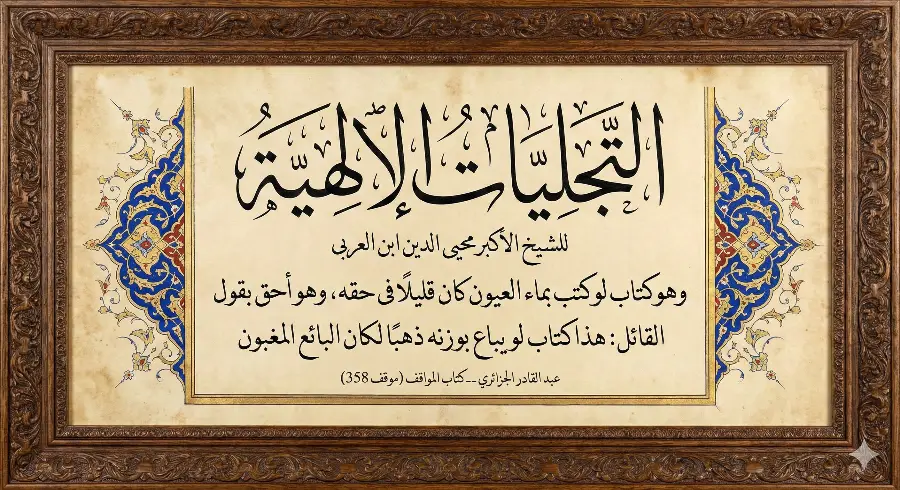 التَّجَلِّيَاتُ الإِلٰهِيَّةُ
للشيخ الأكبر محيي الدين ابن العربي
وهو كتاب لو كتب بماء العيون كان قليلًا في حقه، وهو أحق بقول
القائل: هذا كتاب لو يباع بوزنه ذهبًا لكان البائع المغبون
عبد القادر الجزائري -- كتاب المواقف (موقف 358)